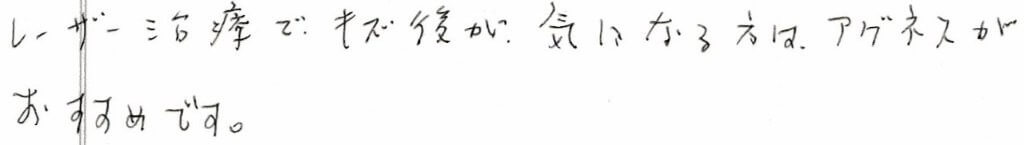 レーザー治療で、キズ後が、気になる方は、アグネスが
おすすめです。